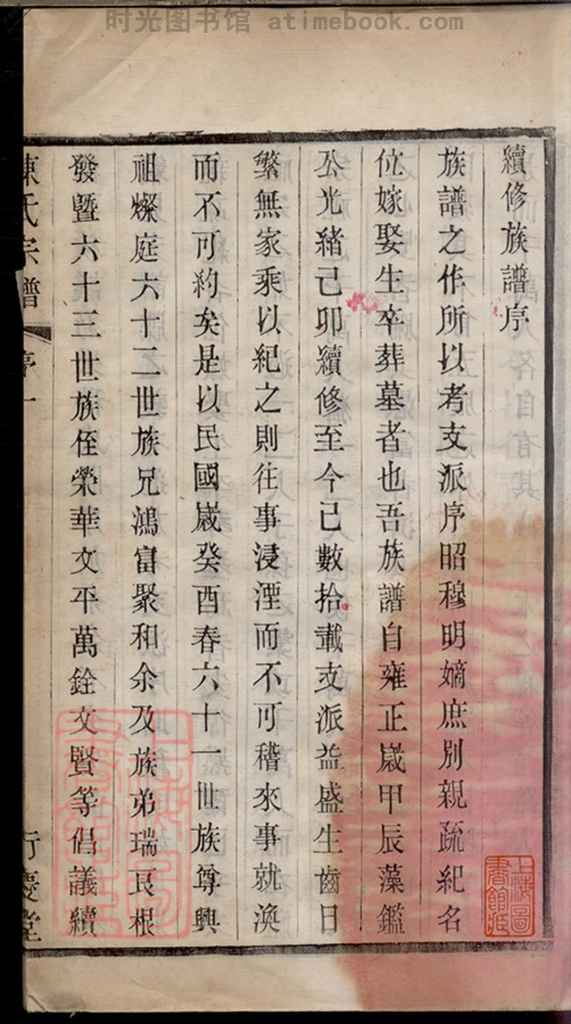 时光图书馆 atimebook.com
續修族譜序
族譜之作所以考支派序昭穆明嫡庶別親疏紀名
位嫁娶生卒葬墓者也吾族譜自雍正歲甲辰藻鑑
公光緒己卯續修至今已數拾載支派益盛生齒日
繁無家乘以紀之則往事浸湮而不可稽來事就渙
而不可約矣是以民國歲癸酉春六十一世族尊興
祖燦庭六十二世族兄鴻富聚和余及族弟瑞良根
發暨六十三世族侄榮華文平萬銓文賢等倡議續
陳氏宗譜 序 一 行慶堂
上海圖書館藏